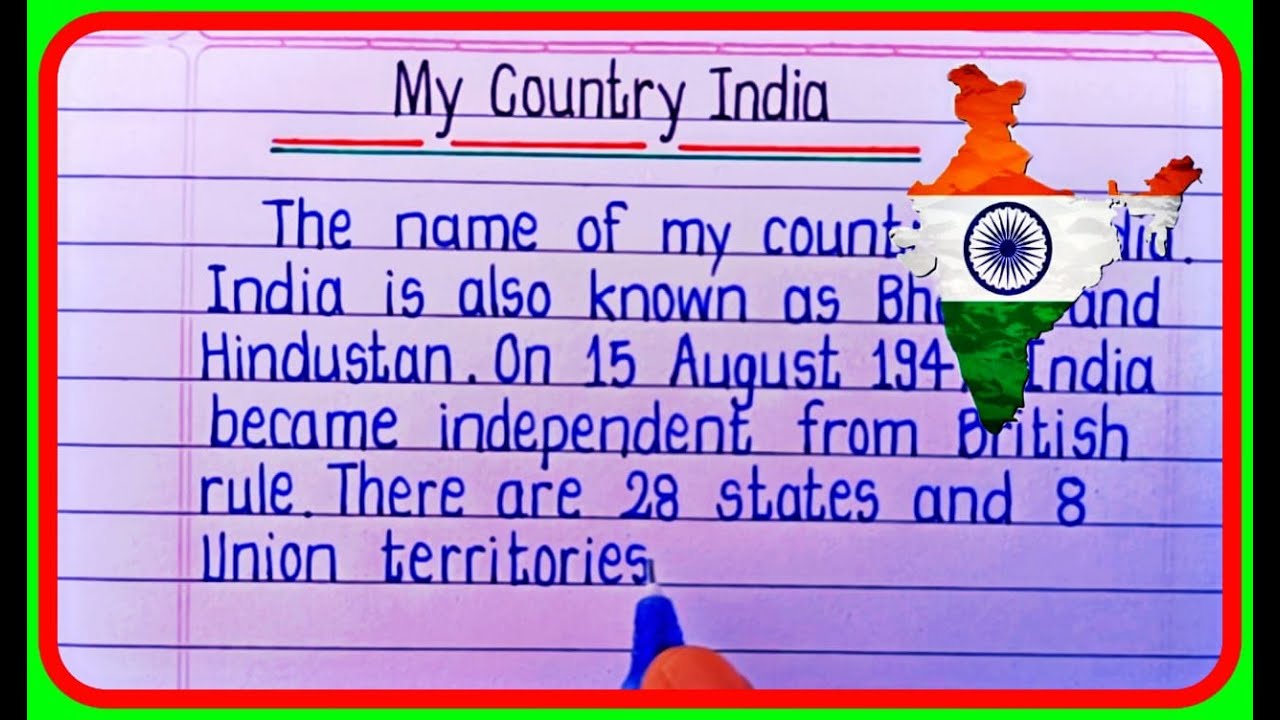 My Country India
The name of my
India is also known as and
Hindustan. On 15 August India
became independent from British
rule. There are 28 states and 8
Union territories